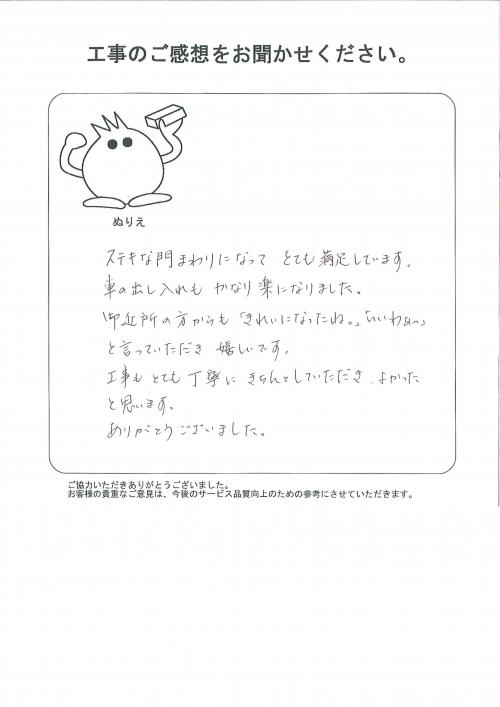 工事のご感想をお聞かせください。
ぬりえ
ステキな門まわりになって とても満足しています。
車の出し入れも かなり楽になりました。
御近所の方からも「きれいになったね。」「いいわぁ〜」
と言っていただき 嬉しいです。
工事も とても丁寧に きちんとしていただき、よかった
と思います。
ありがとうございました。
ご協力いただきありがとうございました。
お客様の貴重なご意見は、今後のサービス品質向上のための参考にさせていただきます。